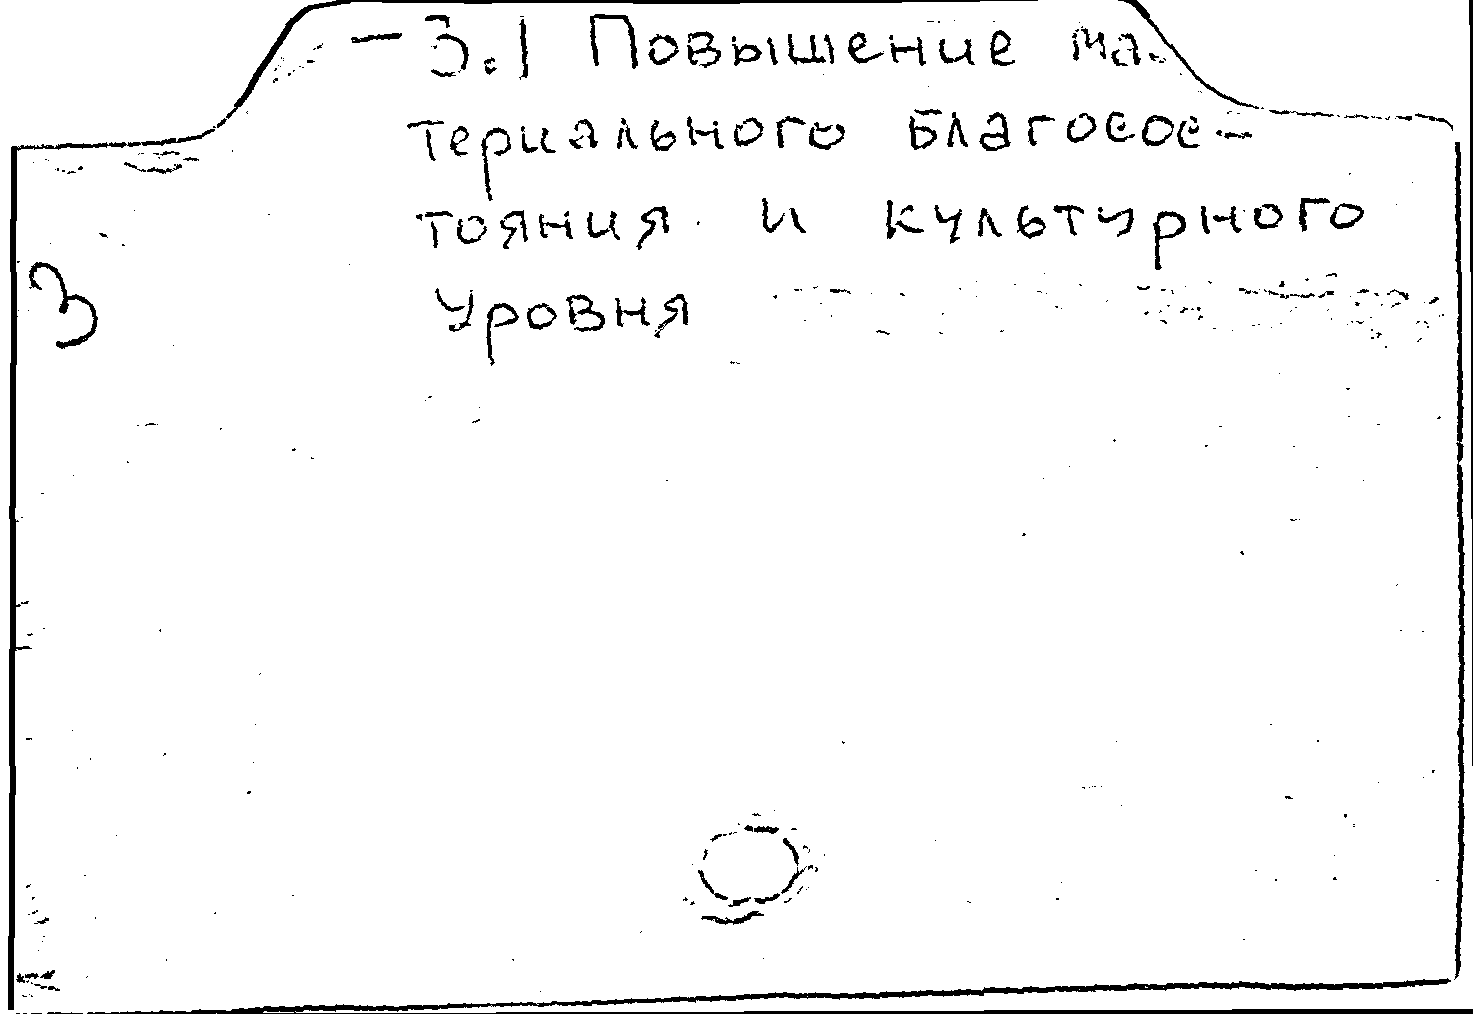 - 3.1 Повышение ма-
териального благосос-
тояния и культурного
3
уровня